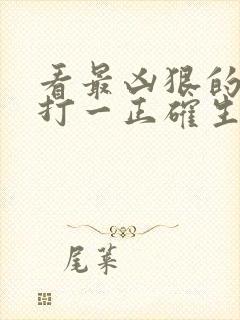 看最凶狠的
打一正确生
尾菜